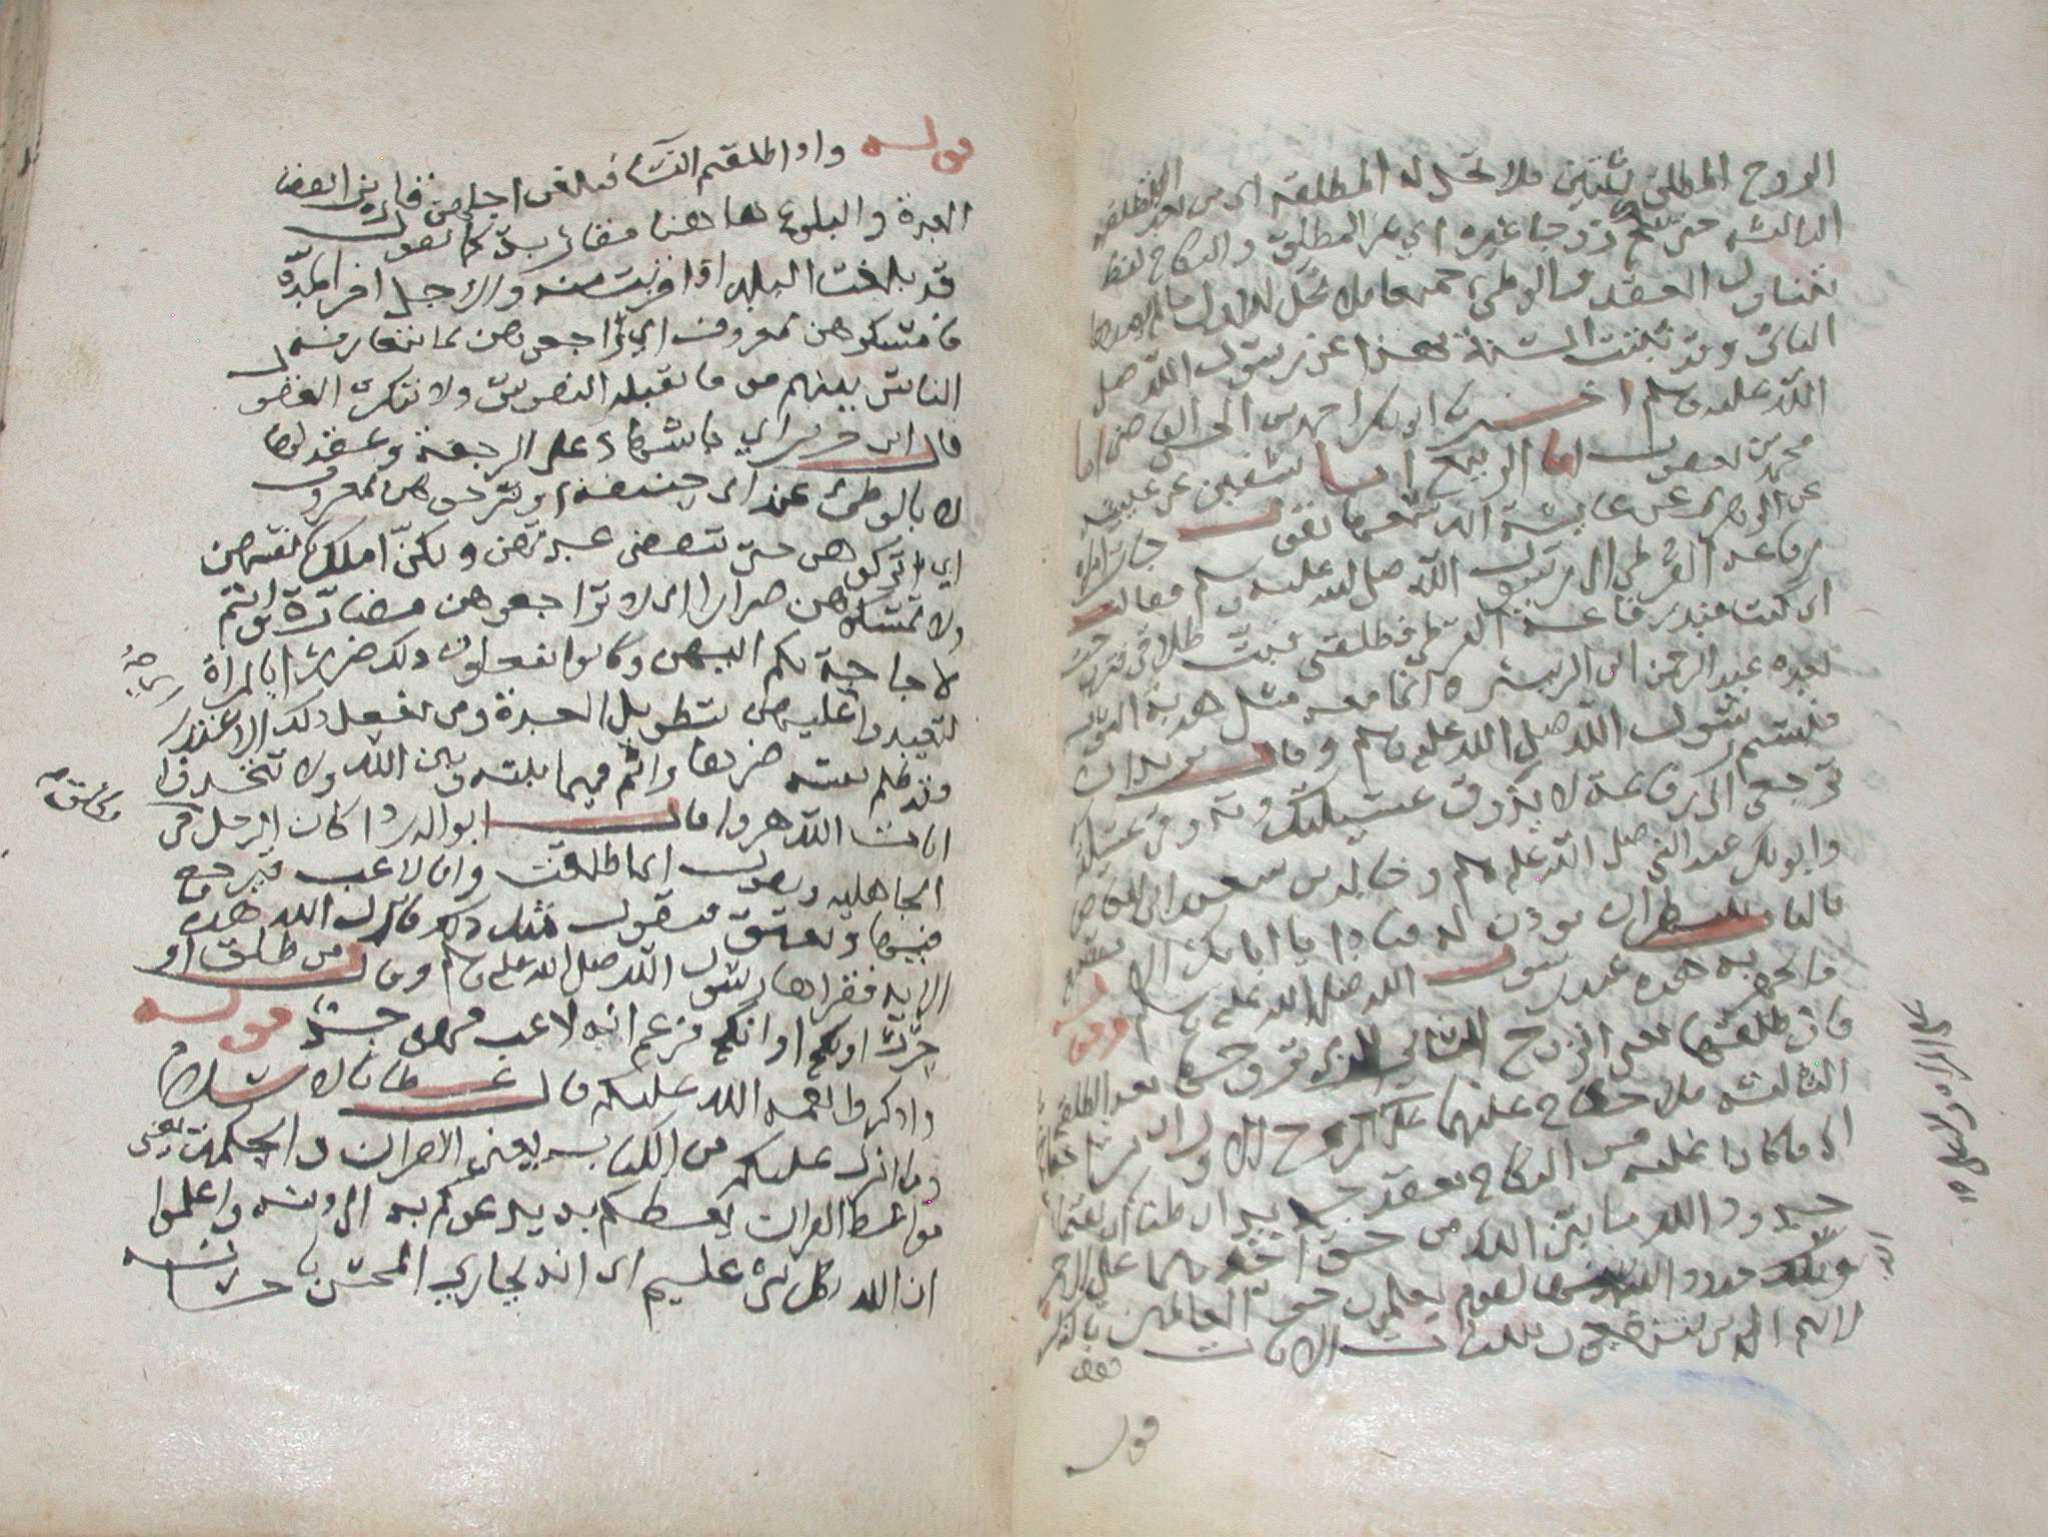 الزوج المطلق ثنتين فلا تحل له المطلقة اي من بعد التطليقه
الثالثه حتى تنكح زوجا غيره اي غير المطلق والنكاح لفظ
يتناول العقد والوطي جميعا فلا تحل للاول ما لم يصبها
الثاني وقد بينت السنة بهذا عن رسول الله صلى
الله عليه وسلم اخبرنا ابو بكر احمد بن الحسن القاضي انا
محمد بن يعقوب انا الربيع انا سفيين عن عيينه
عن الزهري عن عايشة انه سمعها تقول جات امراه
رفاعه القرظي الى رسول الله صلى الله عليه وسلم فقالت
اني كنت عند رفاعه القرظي فطلقني فبت طلاقي فتزوجت
بعده عبد الرحمن ابن الزبير وانما معه مثل هدبة الثوب
فتبسم رسول الله صلى الله عليه وسلم وقال تريدين ان
ترجعي الى رفاعه لا يذوق عسيلتك وتذوقي عسيلته
وابو بكر عند النبي صلى الله عليه وسلم وخالد بن سعيد ابن العاص
بالباب ينتظر ان يوذن له فنادا يا ابا بكر الا تسمع
ما تجهر به هذه عند رسول الله صلى الله عليه وسلم وقوله
فان طلقها يعني الزوج الثاني الذي تزوجها بعد الطلقة
الثالثه فلا جناح عليهما على الزوج الاول ان يتراجعا
الى ما كانا عليه من النكاح بعقد جديد ان ظنا ان يقيما
حدود الله ما بين الله من حق احدهما على الاخر
وتلك حدود الله يبينها لقوم يعلمون خص العالمين بالذكر
لانهم الذين ينتفعون ببيان الايات
قوله
قوله واذا طلقتم النسا فبلغن اجلهن قاربن انقضا
العدة والبلوغ هاهنا مقاربة كما تقول
قد بلغت البلد اذا قربت منه والاجل اخر المدة
فامسكوهن بمعروف اي راجعوهن بما يتعارفه
الناس بينهم من ما تقبله النفوس ولا تنكره العقول
قال ابن جرير اي باشهاد على الرجعة وعقد لها
لا بالوطئ عند ابي حنيفة او سرحوهن بمعروف
اي اتركوهن حتى تنقضي عدتهن ويكن املك بانفسهن
ولا تمسكوهن ضرارا اي لا تراجعوهن مضارة وانتم
لا حاجة بكم اليهن وكانوا يفعلون ذلك ضرارا بالمراة
لتعتدوا عليهن بتطويل العدة ومن يفعل ذلك الاعتدا
فقد ظلم نفسه ضرها واثم فيما بينه وبين الله ولا تتخذوا
ايات الله هزوا قال ابو الدردا كان الرجل في
الجاهليه ويقول انما طلقت وانا لاعب فيرجع
فيها ويعتق فيقول مثل ذلك فانزل الله هذه
الايه فقراها رسول الله صلى الله عليه وسلم وقال من طلق او
حرر او نكح او انكح فزعم انه لاعب فهو جد قوله
واذكروا نعمه الله عليكم قال عطا بالاسلام
وما انزل عليكم من الكتاب يعني القران والحكمة يعني
مواعظ القران يعظكم به يدعوكم به الى دينه واعلموا
ان الله بكل شي عليم اي انه يجازي المحسن باحسانه